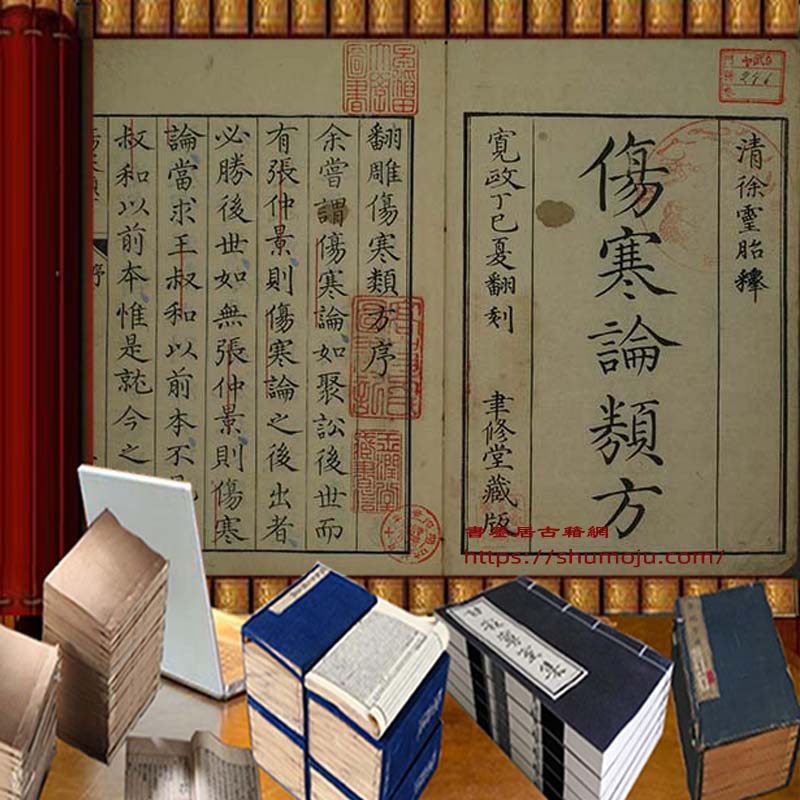 清徐靈胎釋
傷寒論類方
寬政丁巳夏翻刻 聿修堂藏版
翻雕傷寒類方序
余嘗謂傷寒論如聚訟後世而
有張仲景則傷寒論之後出者
必勝後世如無張仲景則傷寒
論當求王叔和以前本不見
叔和以前本惟是就今之
序
早稲田大學圖書
書墨居古籍網
https://shumoju.com/